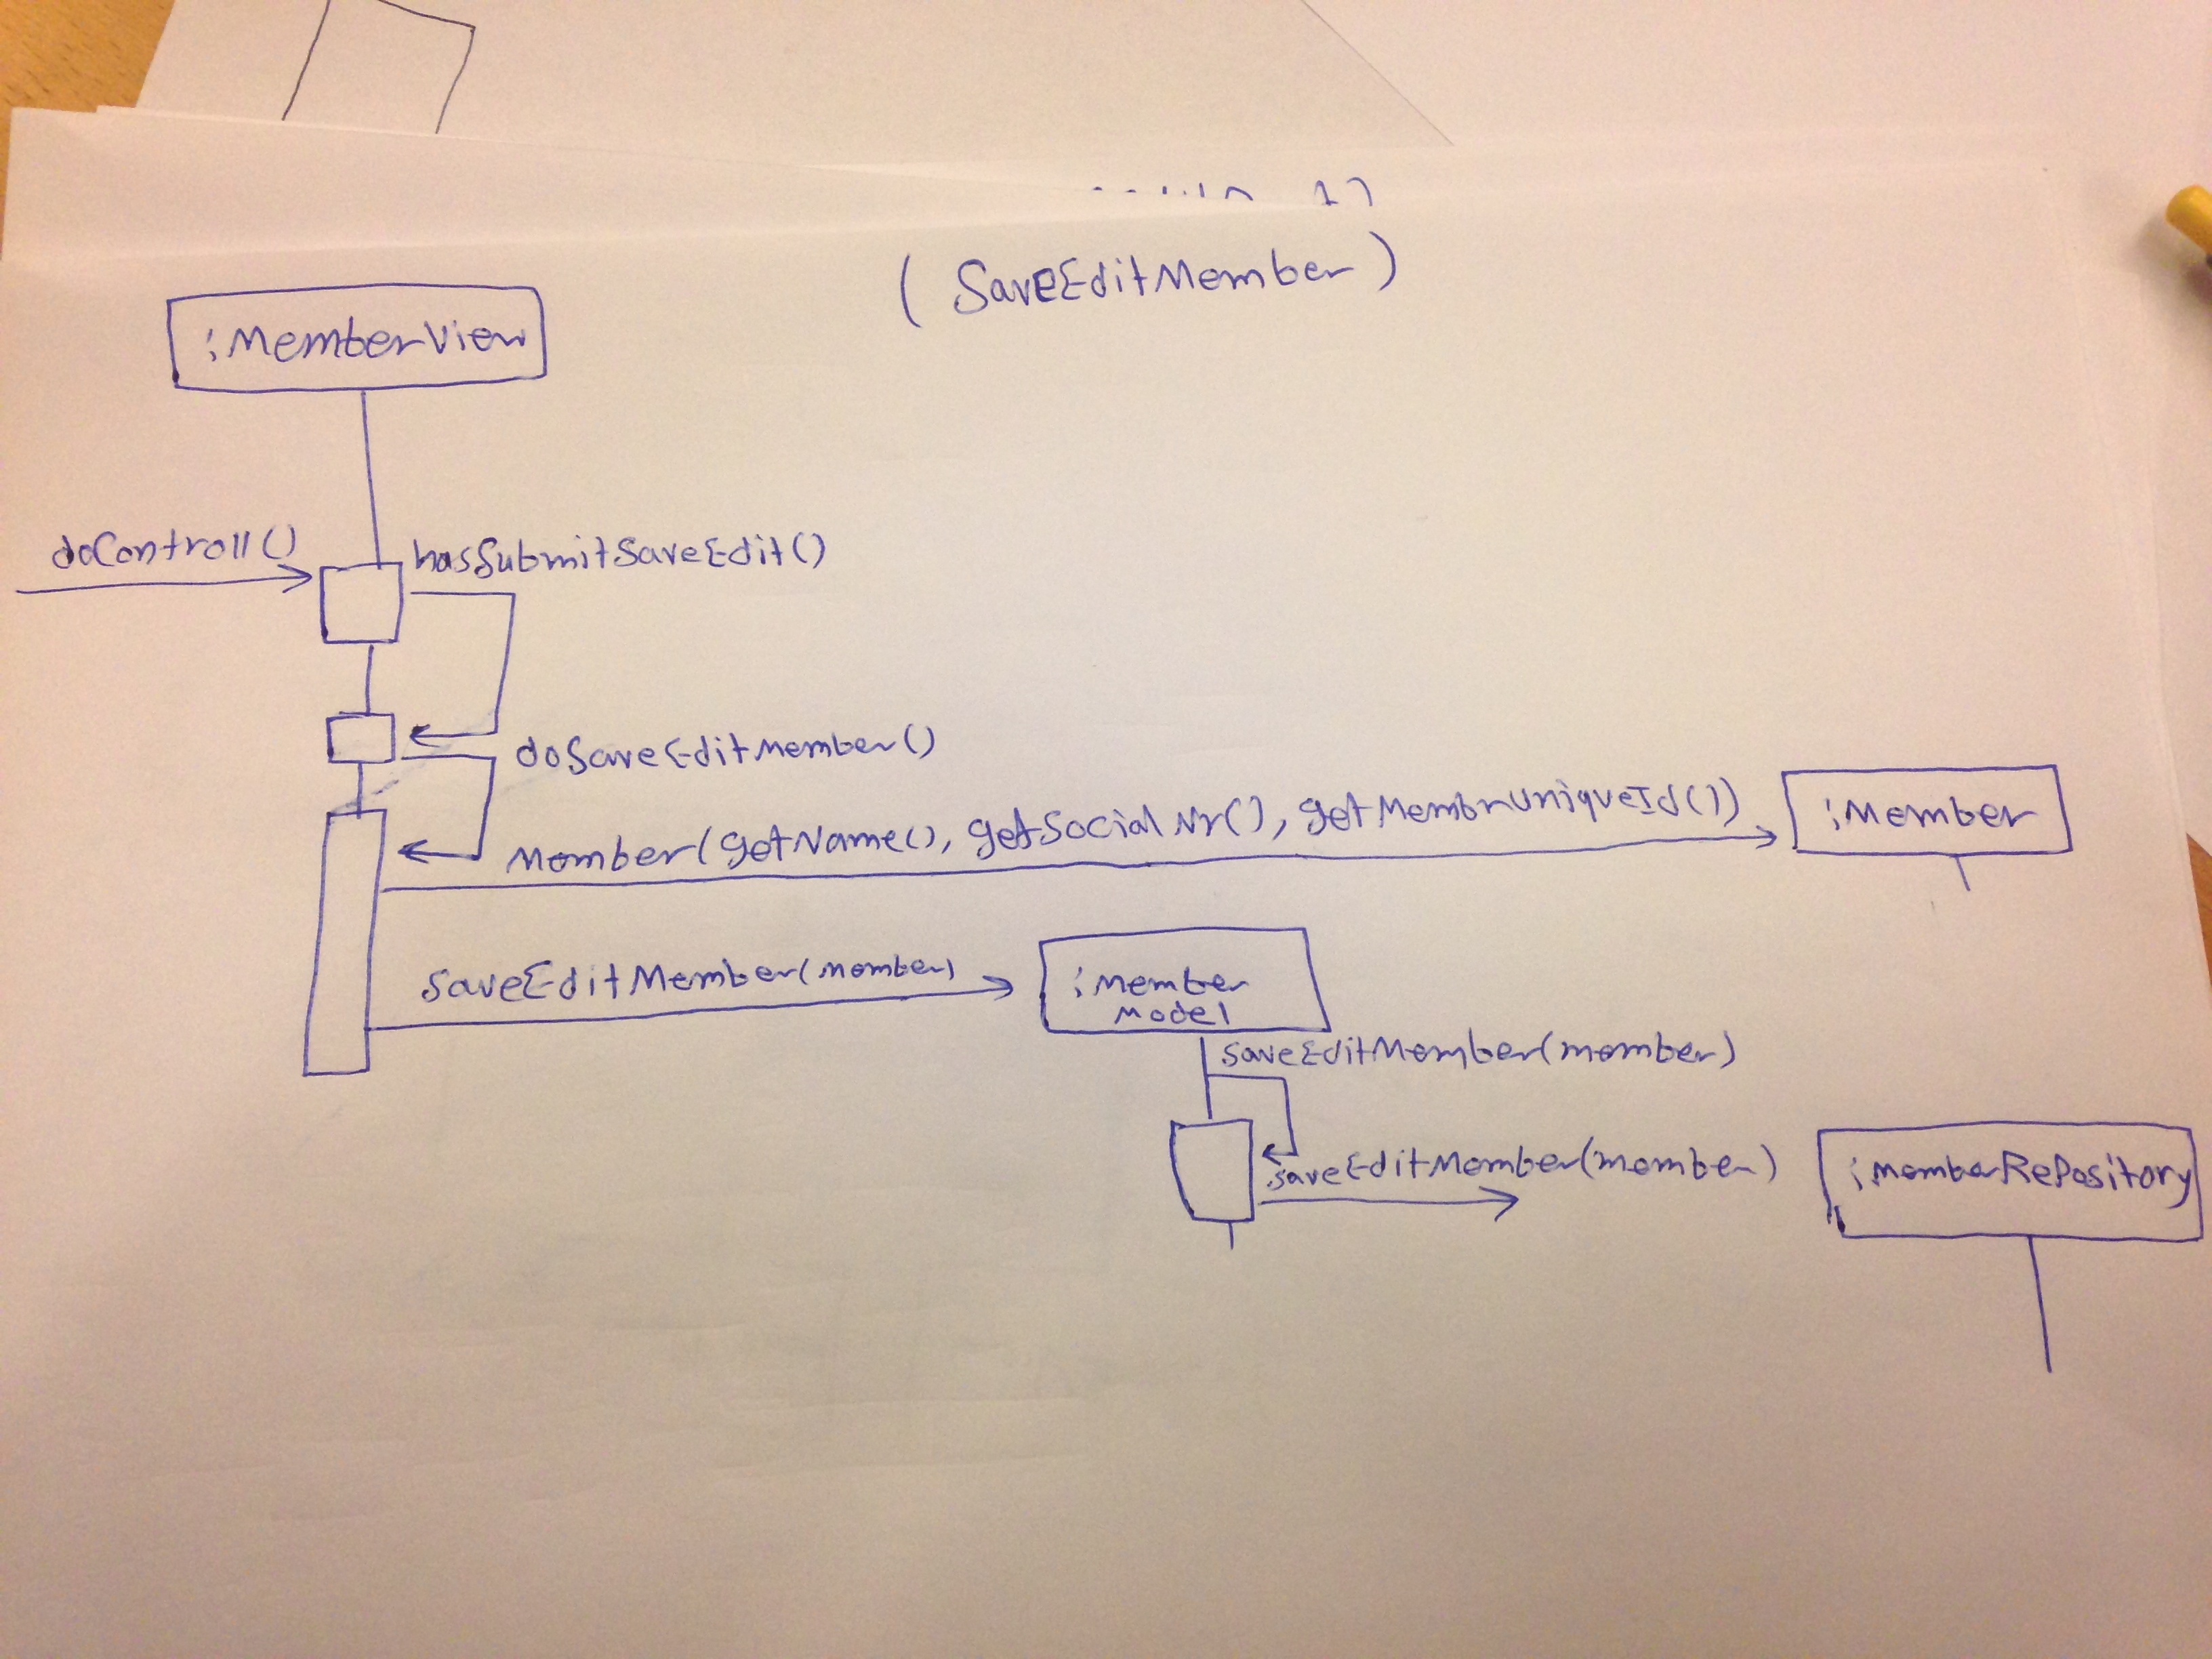 ( SaveEditMember )
:MemberView
doControll()
hasSubmitSaveEdit()
doSaveEditMember()
Member(getName(), getSocialNr(), getMembrUniqueId())
:Member
saveEditMember(member)
:Member
Model
saveEditMember(member)
saveEditMember(member)
:memberRePository